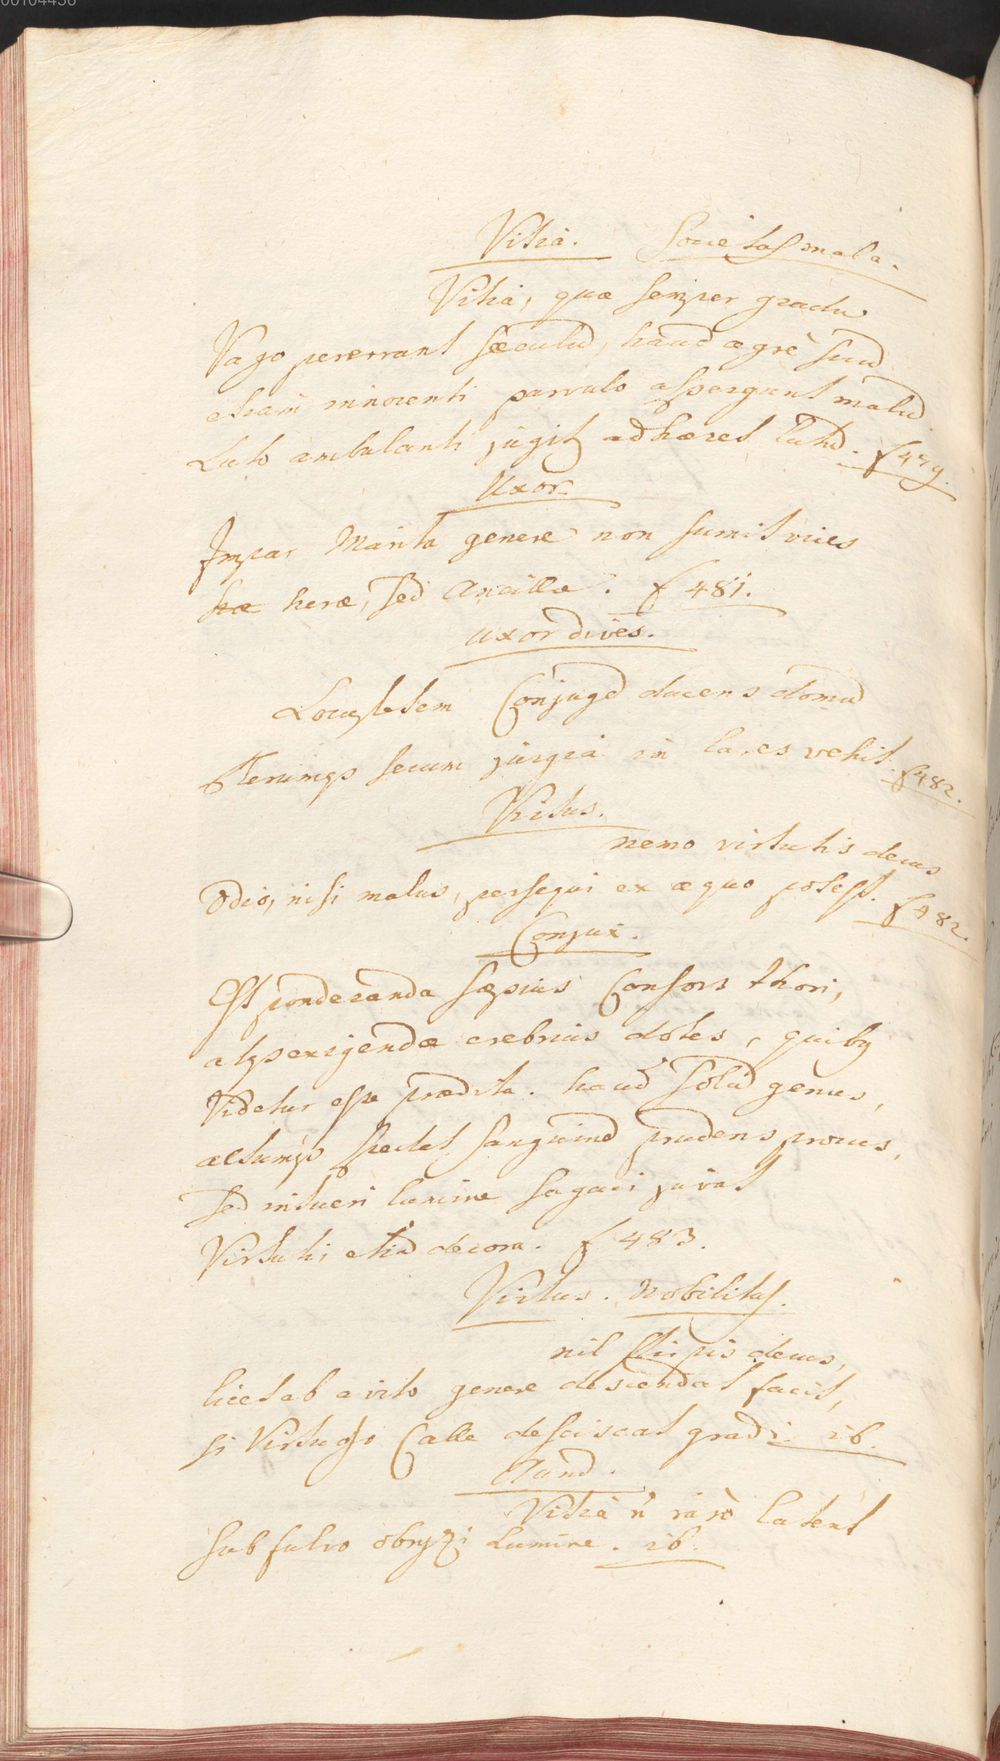 00104438
Vitia. Societas mala.
Vitia, quæ semper gradu
Vago pererrant sæculũ, haud ægrè suũ
etiam innocenti parvulo aspergunt malũ.
Luto ambulanti jugiter adhæret lutũ. f 479.
Uxor.
Impar Marito genere non sumit vices
heræ, sed Ancillæ. f 481.
Uxor dives.
Locupletem Conjugẽ ducens domũ
plerumq3 secum jurgia in lares vehit. f 482.
Virtus.
nemo virtutis decus
Odio, nisi malus, persequi ex æquo potest. f 482.
Conjux.
Est ponderanda sæpius Consors thori,
atq3 exigendæ crebrius dotes, quib9
Videtur esse prædita. haud solũ genus,
altumq3 spectet sanguinẽ prudens procus,
sed intueri lumine sagaci juvat
Virtutis etiã decora. f 483.
Virtus. Nobilitas.
nil stirpis decus,
licet ab avito genere descendat facit,
si Virtuoso Calle desciscat gradi. ib.
Vitia ñ rarò latent
sub fulvo obryzi Lumine. ib.